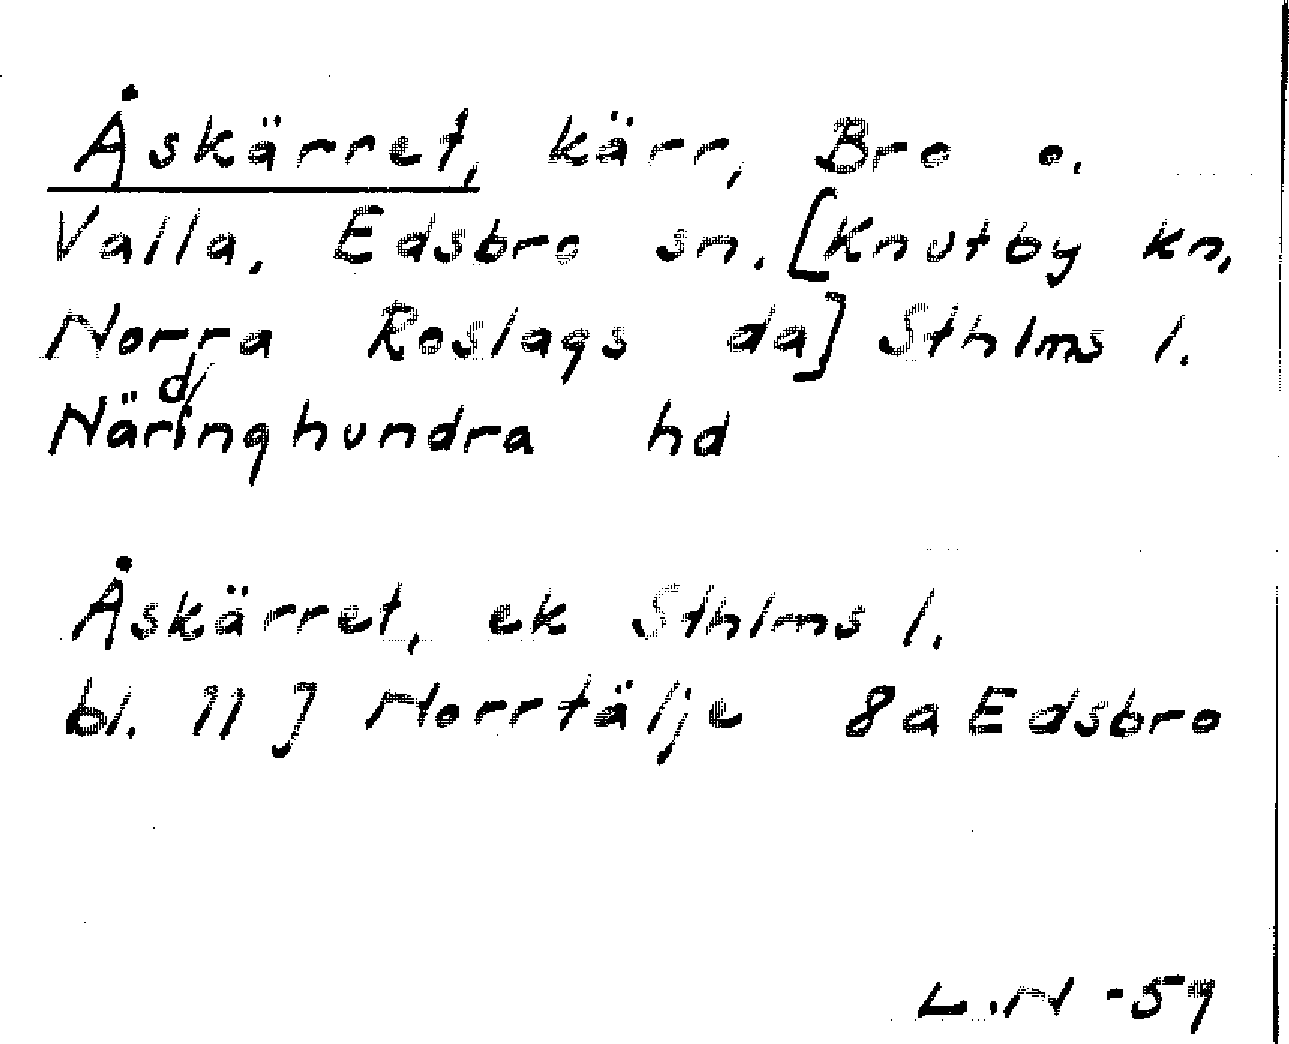 Åskärret, kärr, Bro o.
Valla, Edsbro sn. [Knutby kn,
Norra Roslags da] Sthlms l.
Närdinghundra hd
Åskärret, ek Sthlms l.
bl. 11 J Norrtälje 8a Edsbro
L.N -59